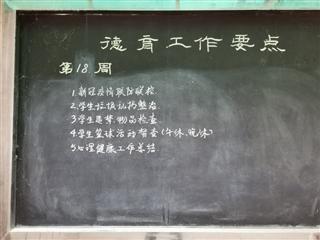 德育工作要点
第18周
1.新冠疫情联防联控
2.学生垃圾认捡整治
3.学生违禁物品检查
4.学生篮球活动督查(午休、晚休)
5.心理健康工作总结